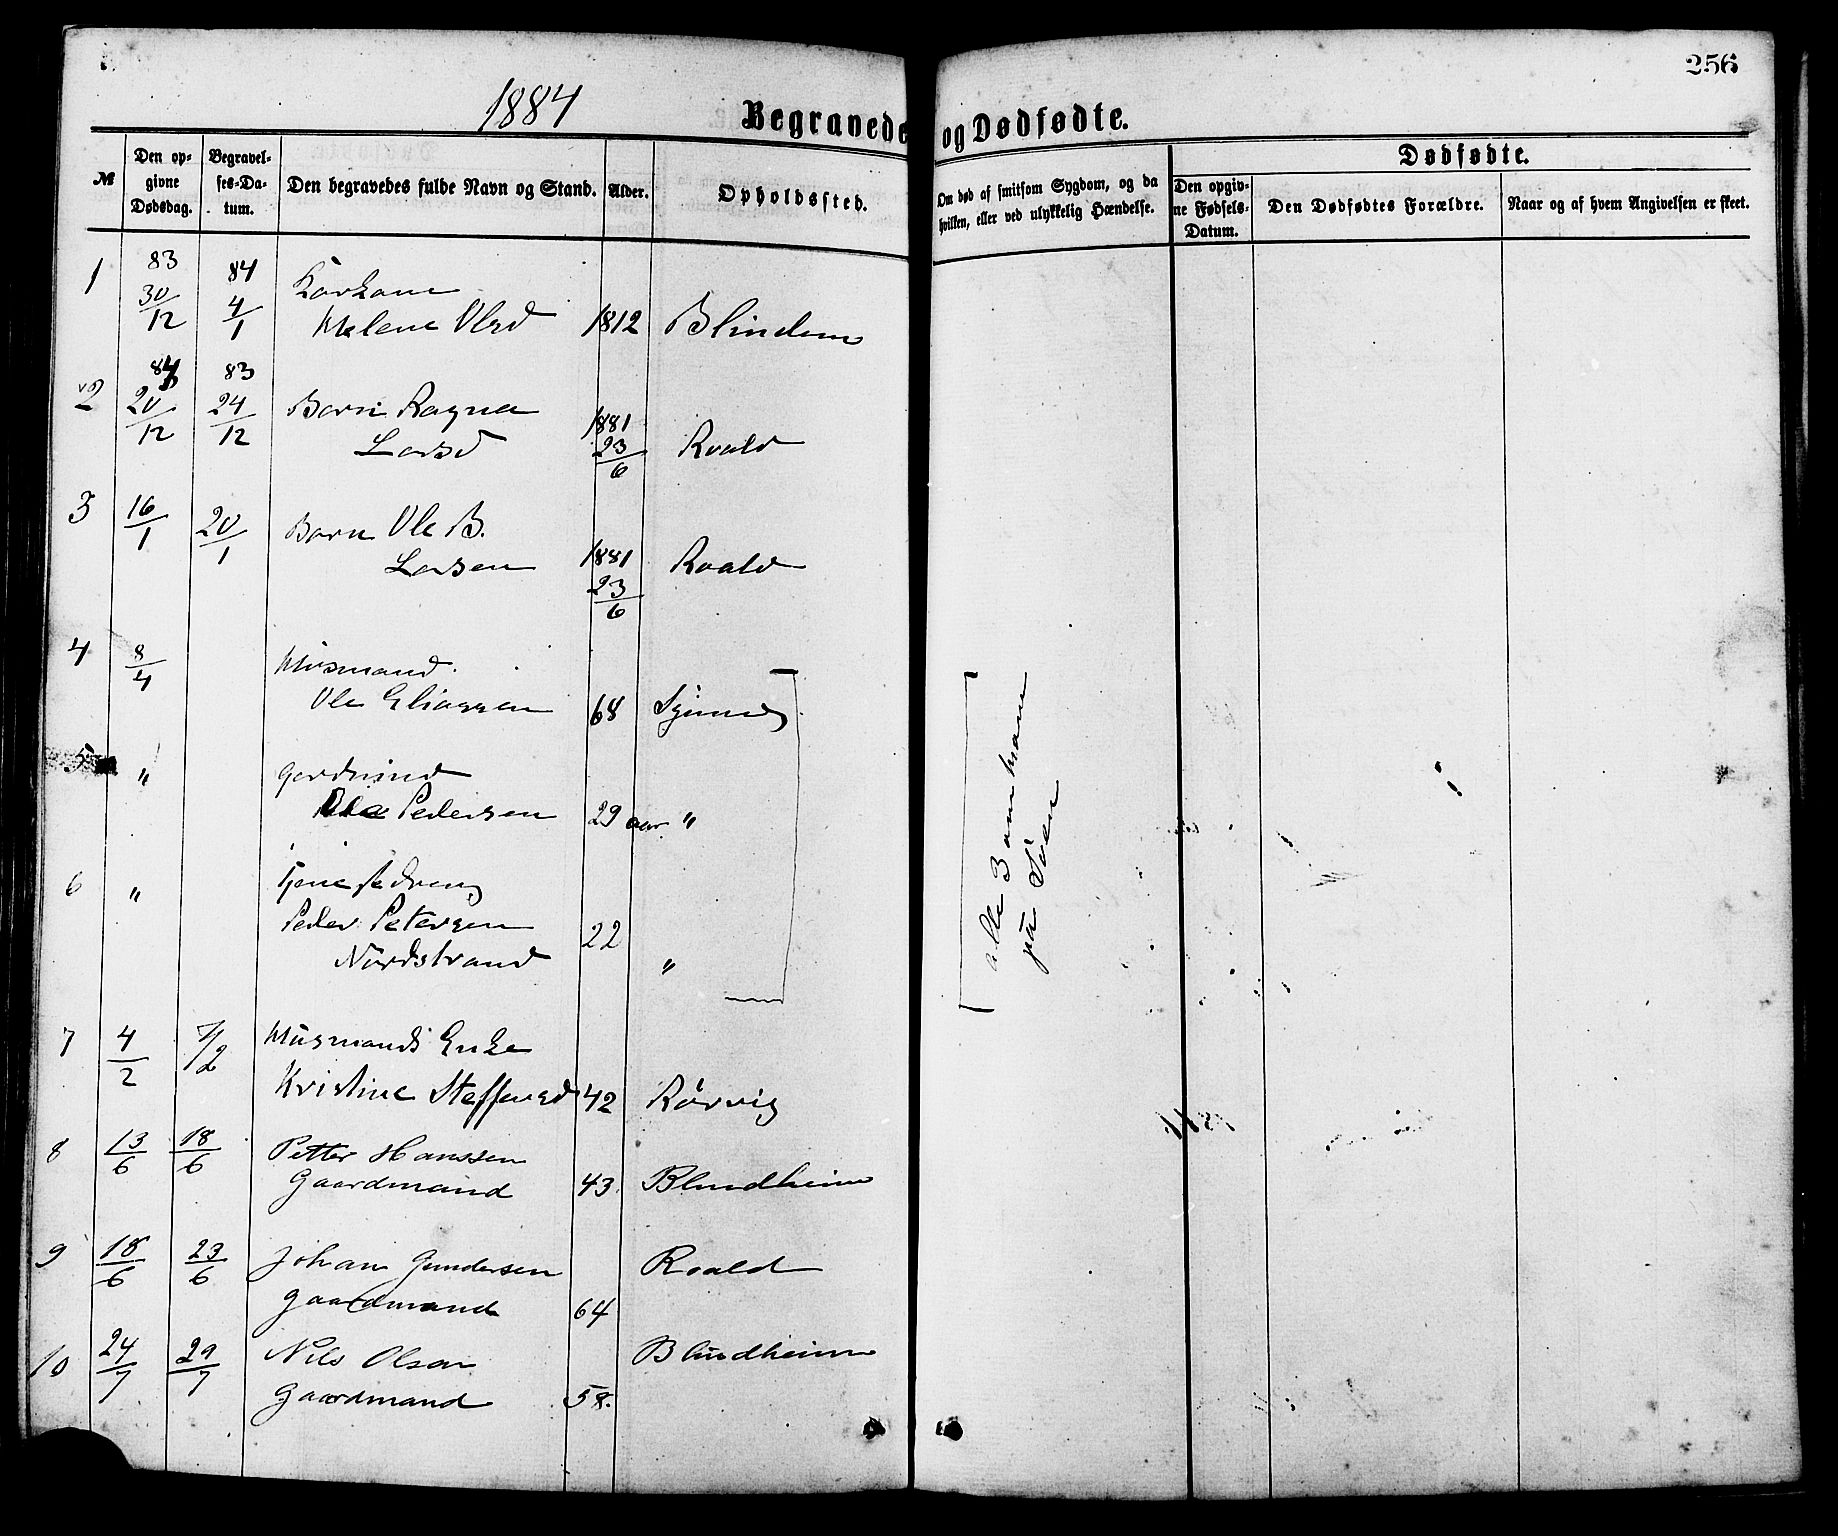 256
1884
Begravede og Dødfødte.
№
Den op-
givne
Dødsdag.
Begravel-
ses-Da-
tum.
Den begravedes fulde Navn og Stand.
Alder.
Opholdssted.
Om død af smitsom Sygdom, og da
hvilken, eller ved ulykkelig Hændelse.
Dødfødte.
Den opgiv-
ne Fødsels-
Datum.
Den Dødfødtes Forældre.
Naar og af hvem Angivelsen er skeet.
1 83 30/12 84 4/1
Helene Olsd 1812 Blindem
2 20/12 83 24/12 Barn Ragna
Larsd 1881 23/6 Roald
3 16/1 20/1 Barn Ole B.
Larsen 1881 23/6 Roald
4 8/4 Husmand
Ole Eliassen 68
5 "
Pedersen 29 aar "
6 "
Peder Petersen 22
Nordstrand "
alle 3 omkomne
på Söen
7 4/2 7/2 Husmands Enke
Kristine Steffensd 42 Rørvig
8 13/6 18/6 Petter Hanssen
Gaardmand 43 Blindheim
9 18/6 23/6 Johan Gundersen Roald
Gaardmand 64
10 24/7 29/7 Nils Olsen Blindheim
Gaardmand 58.